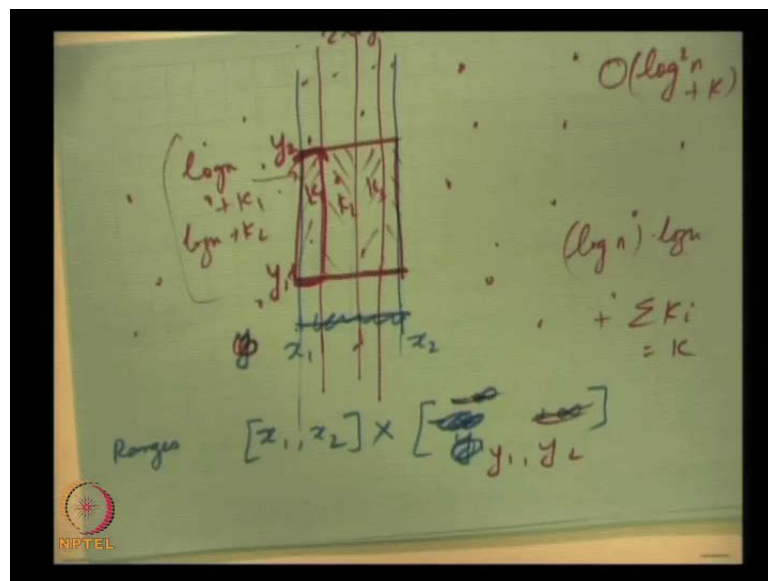 O(log²n
+ K)
y₂
logn
+ K₁
logn + K₂
K₂
(log n) · logn
+ Σ Ki
= K
y₁
x₁
x₂
Ranges [x₁, x₂] × [
y₁, y₂ ]
NPTEL